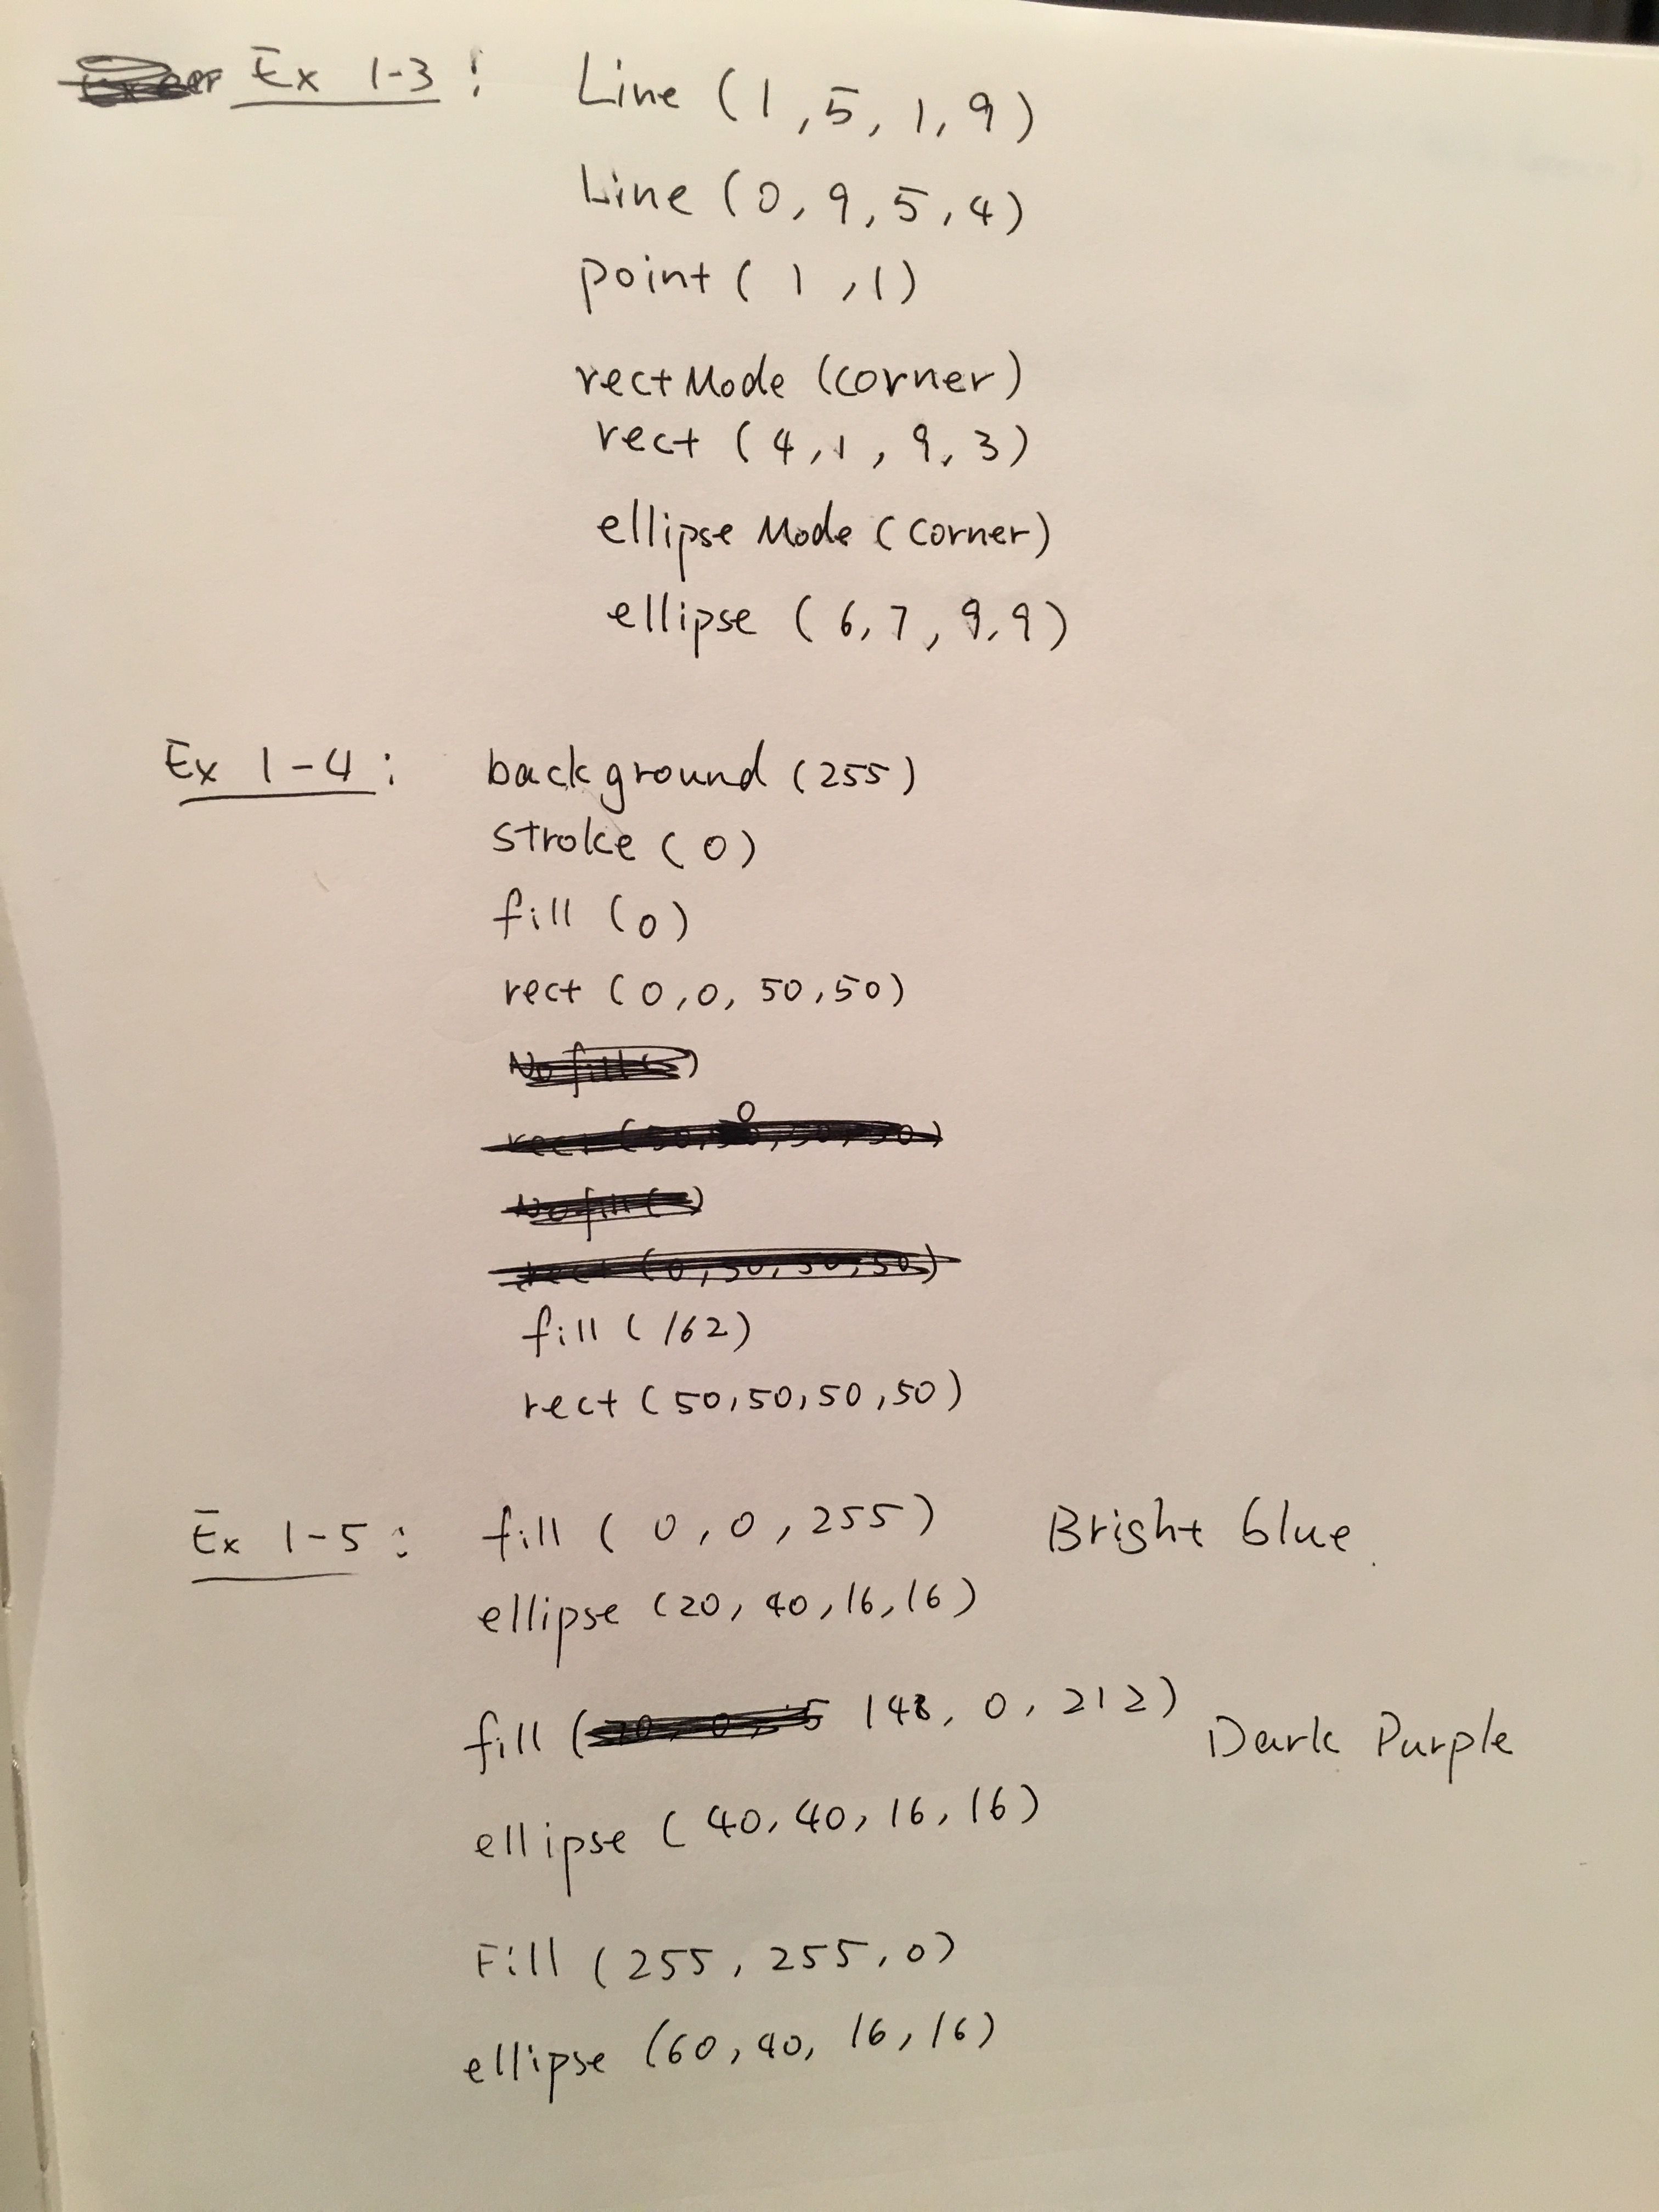 Ex 1-3: Line (1, 5, 1, 9)
Line (0, 9, 5, 4)
point (1, 1)
rectMode (corner)
rect (4, 1, 9, 3)
ellipse Mode (corner)
ellipse (6, 7, 9, 9)
Ex 1-4: background (255)
stroke (0)
fill (0)
rect (0, 0, 50, 50)
fill (162)
rect (50, 50, 50, 50)
Ex 1-5: fill (0, 0, 255) Bright blue.
ellipse (20, 40, 16, 16)
fill ( 148, 0, 212) Dark Purple
ellipse (40, 40, 16, 16)
Fill (255, 255, 0)
ellipse (60, 40, 16, 16)